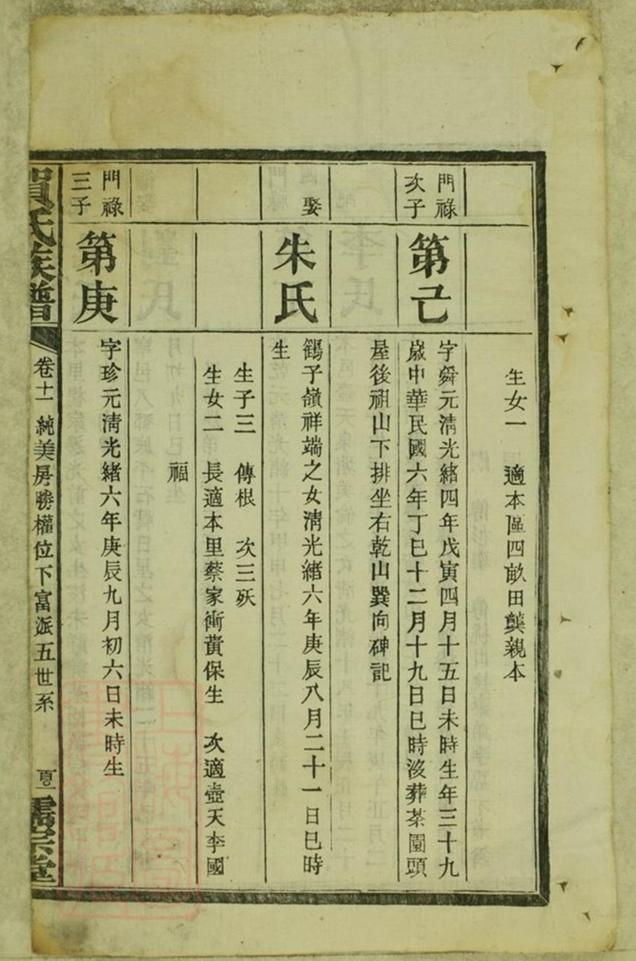 生女一　適本區四畝田龔親本
門祿
次子
第己
字舜元淸光緒四年戊寅四月十五日未時生年三十九
歲中華民國六年丁巳十二月十九日巳時歿葬茶園頭
屋後祖山下排坐右乾山巽向碑記
娶
朱氏
鶴子嶺祥端之女淸光緒六年庚辰八月二十一日巳時
生
生子三　傳根　次三殀
生女二　長適本里蔡家衖黃保生　次適壺天李國
福
門祿
三子
第庚
字珍元淸光緒六年庚辰九月初六日未時生
賀氏族譜
卷十一　純美房勝權位下富派五世系
儒宗堂